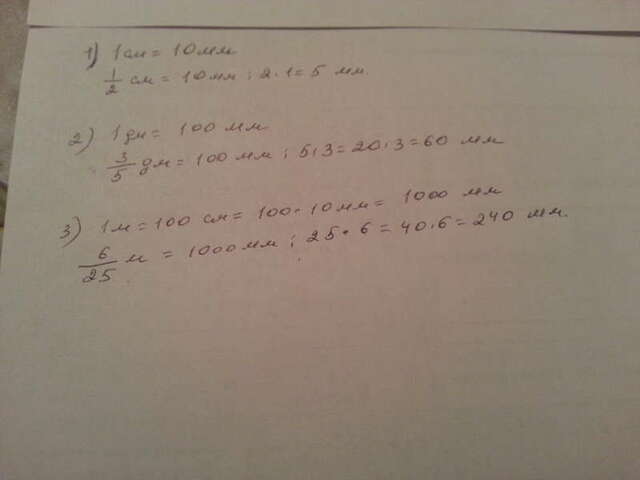 1) 1 см = 10 мм
1/2 см = 10 мм : 2 · 1 = 5 мм.
2) 1 дм = 100 мм
3/5 дм = 100 мм : 5 · 3 = 20 · 3 = 60 мм
3) 1 м = 100 см = 100 · 10 мм = 1000 мм
6/25 м = 1000 мм : 25 · 6 = 40 · 6 = 240 мм.